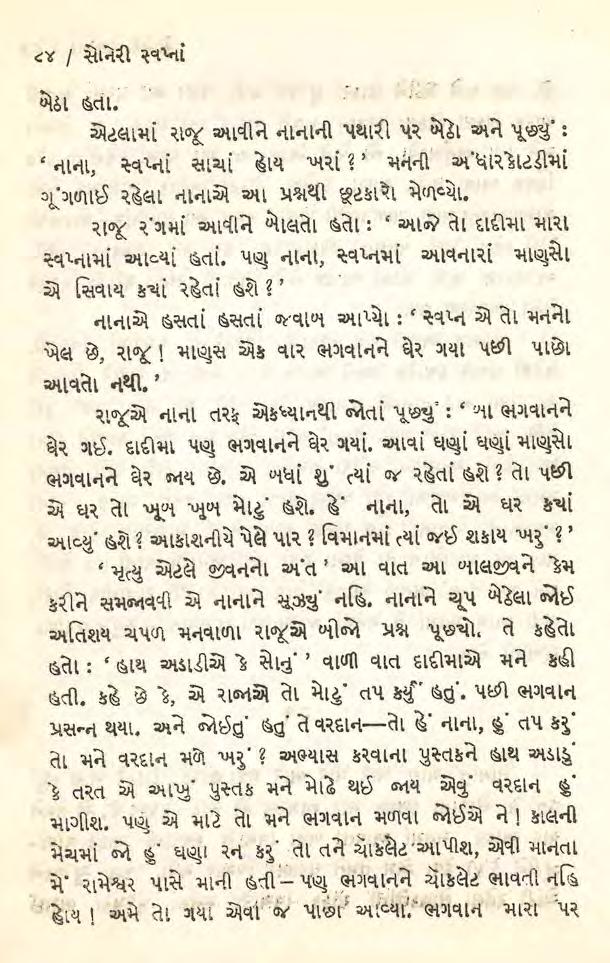 ૮૪ / સોનેરી સ્વપ્નાં
બેઠા હતા.
એટલામાં રાજૂ આવીને નાનાની પથારી પર બેઠો અને પૂછ્યું :
‘ નાના, સ્વપ્નાં સાચાં હોય ખરાં ? ’ મનની અંધારકોટડીમાં
ગૂંગળાઈ રહેલા નાનાએ આ પ્રશ્નથી છૂટકારો મેળવ્યો.
રાજૂ રંગમાં આવીને બોલતો હતો : ‘ આજે તો દાદીમા મારા
સ્વપ્નામાં આવ્યાં હતાં. પણ નાના, સ્વપ્નમાં આવનારાં માણસો
એ સિવાય કયાં રહેતાં હશે ? ’
નાનાએ હસતાં હસતાં જવાબ આપ્યો : ‘ સ્વપ્ન એ તો મનનો
ખેલ છે, રાજૂ ! માણસ એક વાર ભગવાનને ઘેર ગયા પછી પાછો
આવતો નથી. ’
રાજૂએ નાના તરફ એકધ્યાનથી જોતાં પૂછ્યુ : ‘ બા ભગવાનને
ઘેર ગઈ. દાદીમા પણ ભગવાનને ઘેર ગયાં. આવાં ઘણાં ઘણાં માણસો
ભગવાનને ઘેર જાય છે. એ બધાં શું ત્યાં જ રહેતાં હશે ? તો પછી
એ ઘર તો ખૂબ ખુબ મોટું હશે. હેં નાના, તો એ ઘર કયાં
આવ્યું હશે ? આકાશનીયે પેલે પાર ? વિમાનમાં ત્યાં જઈ શકાય ખરું ? ’
‘ મૃત્યુ એટલે જીવનનો અંત ’ આ વાત આ બાલજીવને કેમ
કરીને સમજાવવી એ નાનાને સૂઝયું નહિ. નાનાને ચૂપ બેઠેલા જોઈ
અતિશય ચપળ મનવાળા રાજૂએ બીજો પ્રશ્ન પૂછ્યો. તે કહેતો
હતો : ‘ હાથ અડાડીએ કે સોનું ’ વાળી વાત દાદીમાએ મને કહી
હતી. કહે છે કે, એ રાજાએ તો મોટું તપ કર્યું હતું. પછી ભગવાન
પ્રસન્ન થયા. અને જોઈતું હતું તે વરદાન—તો હેં નાના, હું તપ કરું
તો મને વરદાન મળે ખરું ? અભ્યાસ કરવાના પુસ્તકને હાથ અડાડું
કે તરત એ આખું પુસ્તક મને મોઢે થઈ જાય એવું વરદાન હું
માગીશ. પણ એ માટે તો મને ભગવાન મળવા જોઈએ ને ! કાલની
મેચમાં જો હું ઘણા રન કરું તો તને ચૉકલેટ આપીશ, એવી માનતા
મેં રામેશ્વર પાસે માની હતી – પણ ભગવાનને ચૉકલેટ ભાવતી નહિ
હોય ! અમે તો ગયા એવા જ પાછા આવ્યા. ભગવાન મારા પર